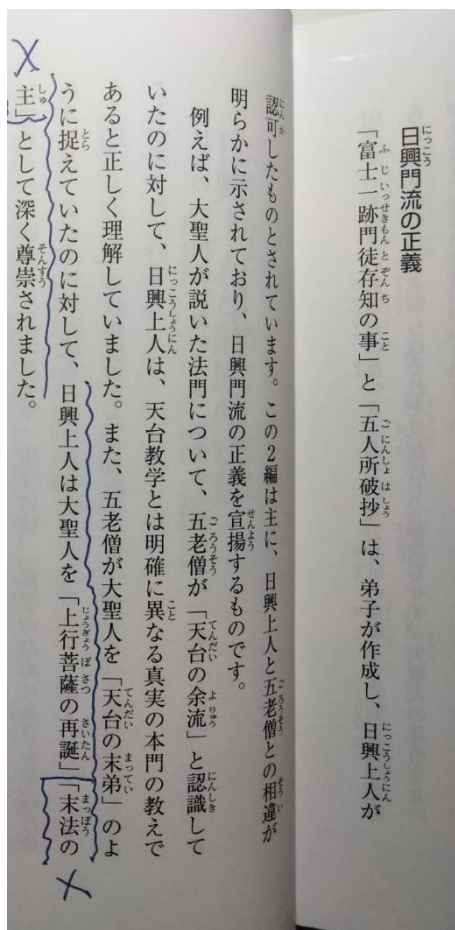 日興門流の正義
「富士一跡門徒存知の事」と「五人所破抄」は、弟子が作成し、日興上人が
認可したものとされています。この2編は主に、日興上人と五老僧との相違が
明らかに示されており、日興門流の正義を宣揚するものです。
例えば、大聖人が説いた法門について、五老僧が「天台の余流」と認識して
いたのに対して、日興上人は、天台教学とは明確に異なる真実の本門の教えで
あると正しく理解していました。また、五老僧が大聖人を「天台の末弟」のよ
うに捉えていたのに対して、日興上人は大聖人を「上行菩薩の再誕」「末法の
主」として深く尊崇されました。